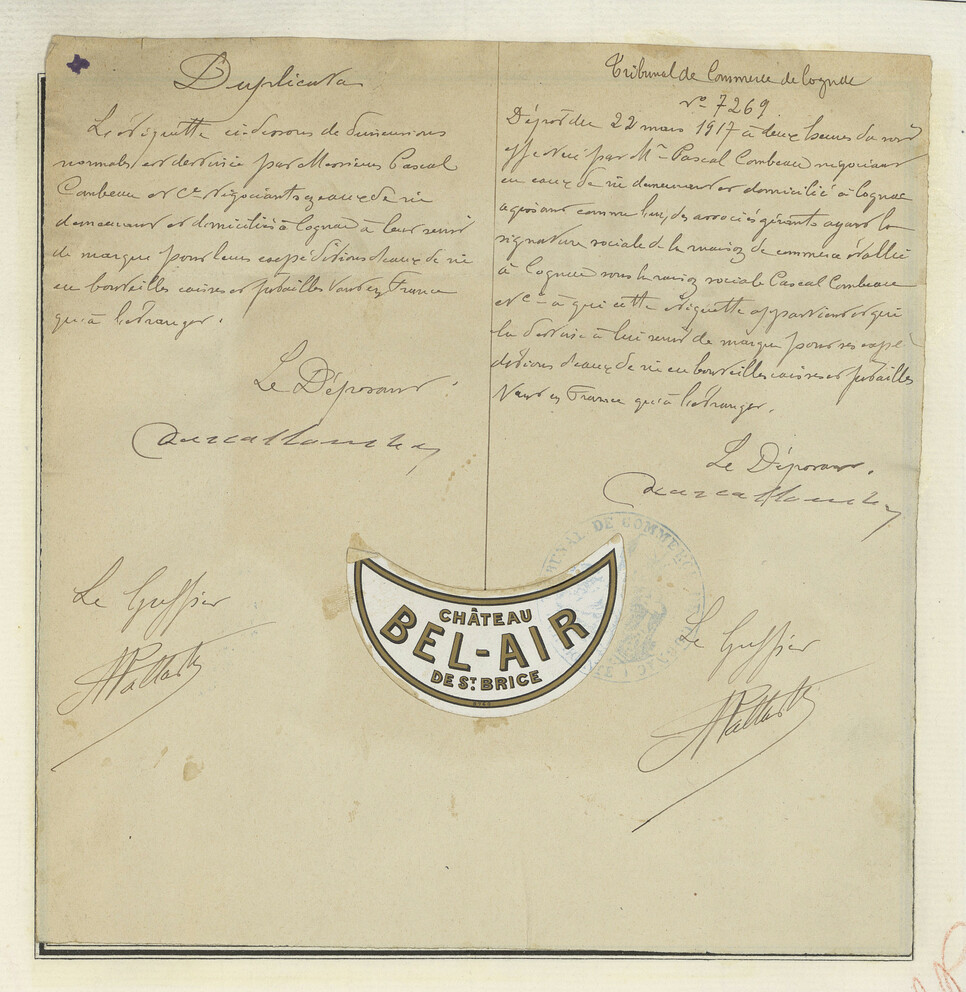 Duplicata
L'étiquette ci-dessous de dimensions
normales est destinée par Messieurs Pascal
Combeau et Cie négociants en eaux de vie
demeurant et domiciliés à Cognac à leur servir
de marque pour leurs expéditions d'eaux de vie
en bouteilles caisses et futailles tant en France
qu'à l'étranger.
Le Déposant.
Le Greffier
Tribunal de Commerce de Cognac
No 7269
Dépôt du 22 mars 1917 à deux heures du soir
effectué par Mr Pascal Combeau négociant
en eaux de vie demeurant et domicilié à Cognac
agissant comme l'un des associés gérants ayant la
signature sociale de la maison de commerce établie
à Cognac sous la raison sociale Pascal Combeau
et Cie à qui cette étiquette appartient et qui
la destine à lui servir de marque pour ses expé
ditions d'eaux de vie en bouteilles caisses et futailles
tant en France qu'à l'étranger.
Le Déposant.
Le Greffier
CHÂTEAU
BEL-AIR
DE ST BRICE
TRIBUNAL DE COMMERCE